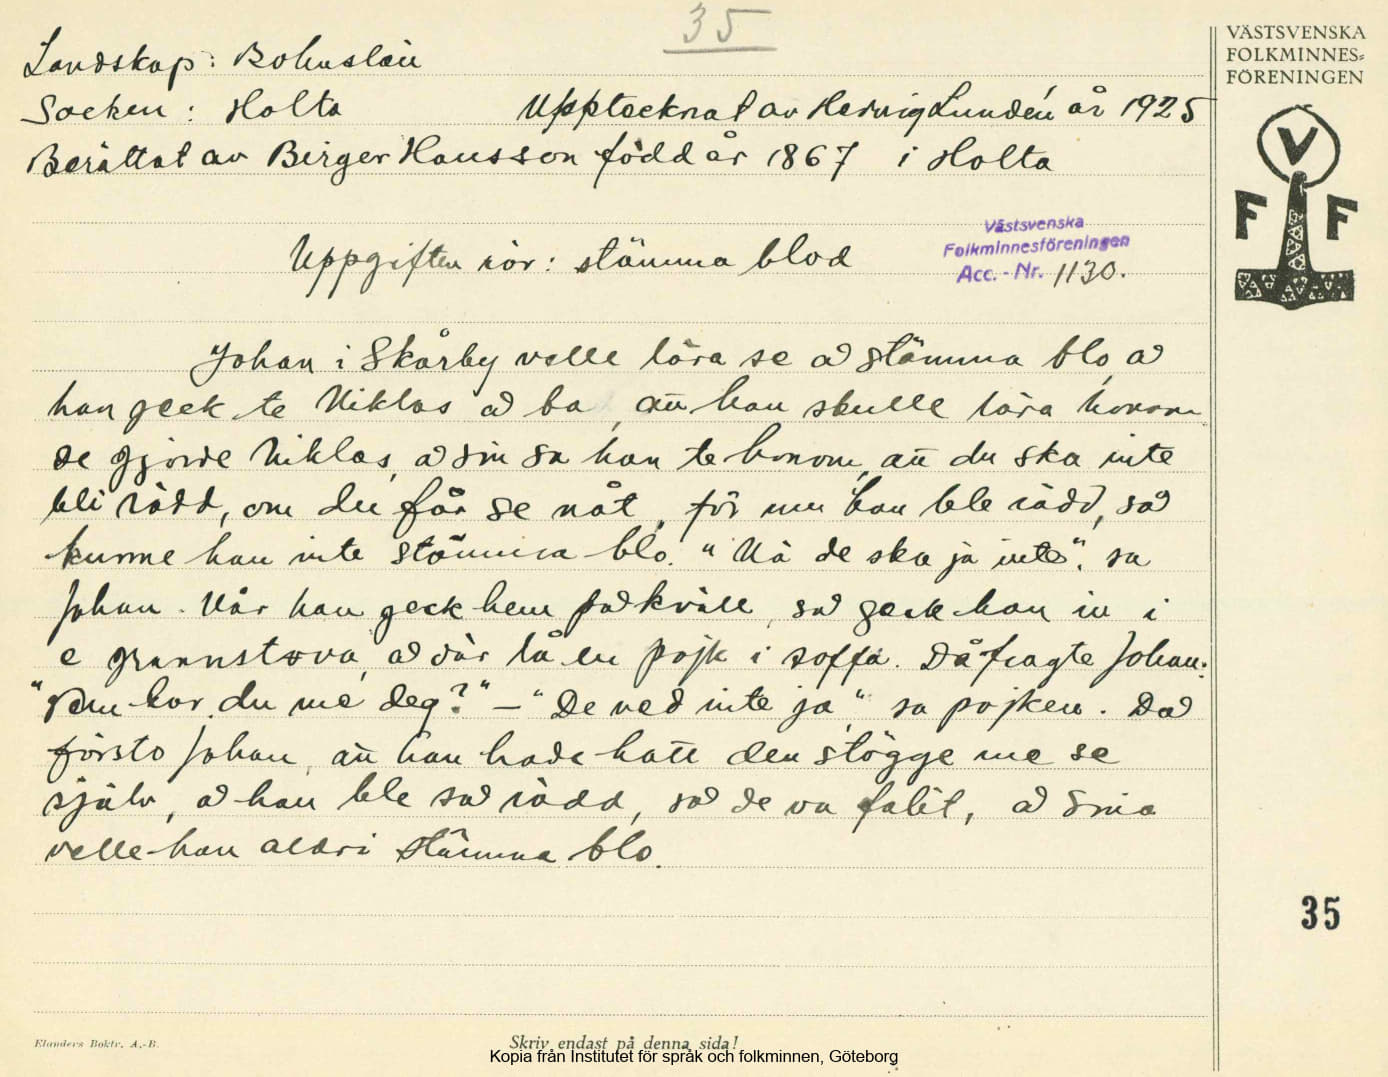 35
VÄSTSVENSKA
FOLKMINNES=
FÖRENINGEN
V
F F
Landskap: Bohuslän
Socken: Holta Upptecknat av Hedvig Lundén år 1925
Berättat av Birger Hansson född år 1867 i Holta
Västsvenska
Folkminnesföreningen
Acc.-Nr. 1130.
Uppgiften rör: stämma blod
Johan i Skårby velle lära se ad stämma blo, ad
han geck te Niklas ad ba, att han skulle lära honom
de gjorde Niklas, ad sin sa han te honom, att du ska inte
bli rädd, om du får se nåt, för um han ble rädd, sad
kunne han inte stämma blo. "Nä de ska ja inte", sa
Johan. När han geck hem pad kväll, sad geck han in i
e grannstova, ad där lå en pojk i soffa. Då fragte Johan:
"Vem har du me deg?" – "De ved inte ja," sa pojken. Dad
försto Johan, att han hade hatt den stögge me se
själv, ad han ble sad rädd, sad de va falit, ad sina
velle han aldri stämma blo.
35
Elanders Boktr. A.-B.
Skriv endast på denna sida!
Kopia från Institutet för språk och folkminnen, Göteborg